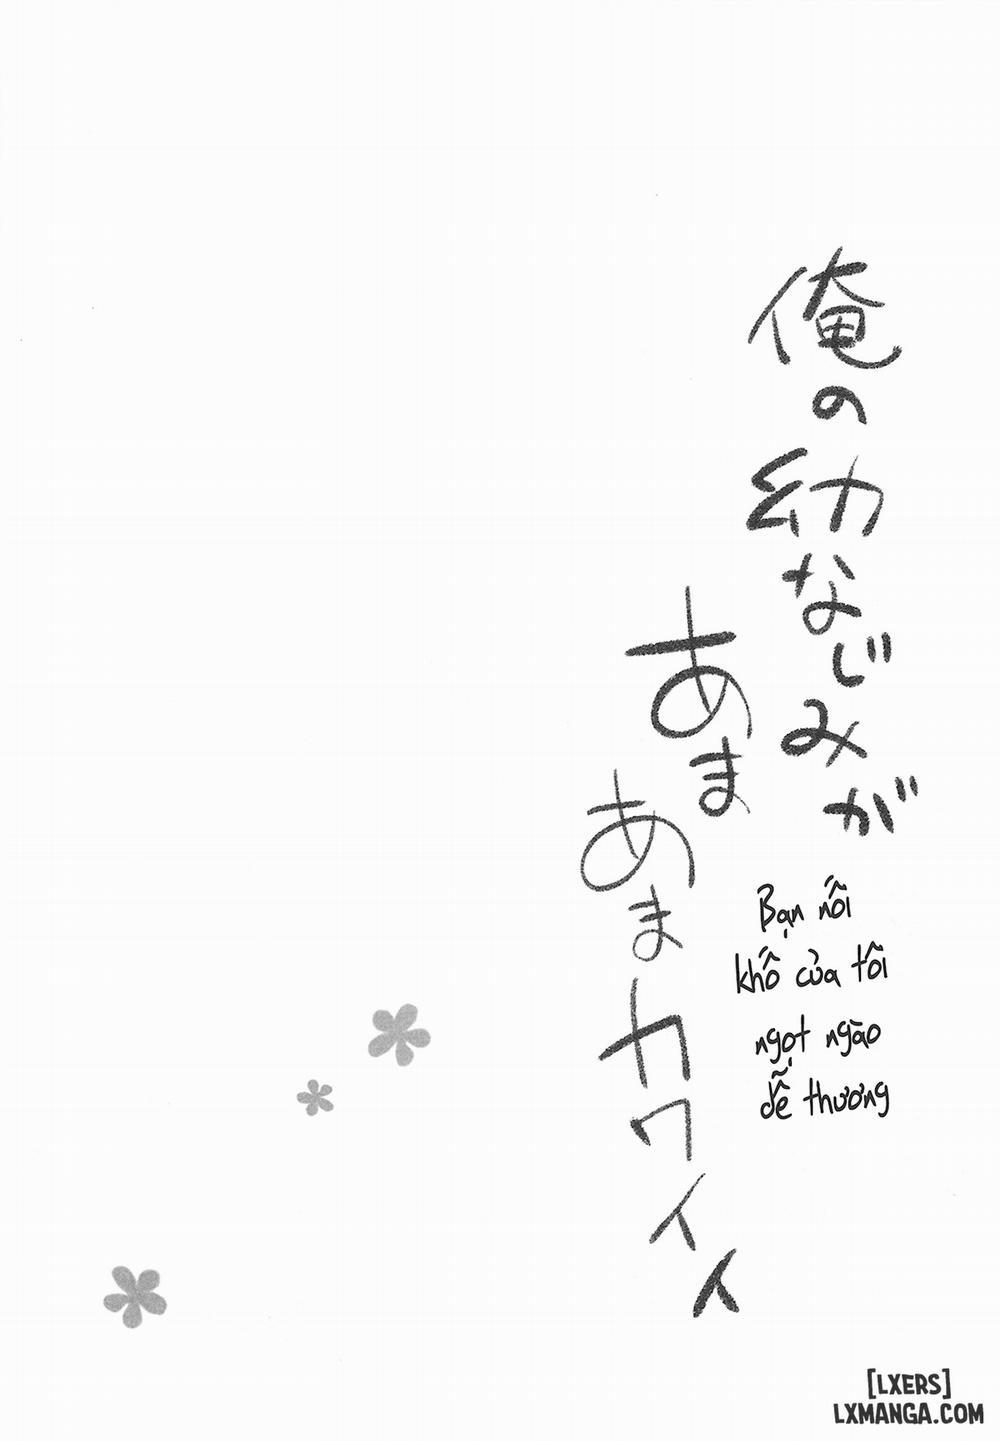 俺の幼なじみが
あま
あま
カワイイ
Bạn nối
khố của tôi
ngọt ngào
dễ thương
[LXERS]
LXMANGA.COM